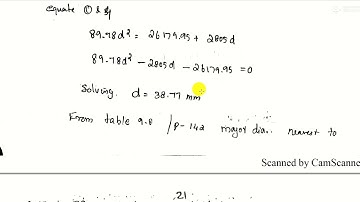 equate ① & ④
89.78d² = 26179.95 + 2805d
89.78d² - 2805d - 26179.95 = 0
Solving. d = 38.77 mm
From table 9.8 /P-142 major dia.. nearest to
Scanned by CamScanne
21